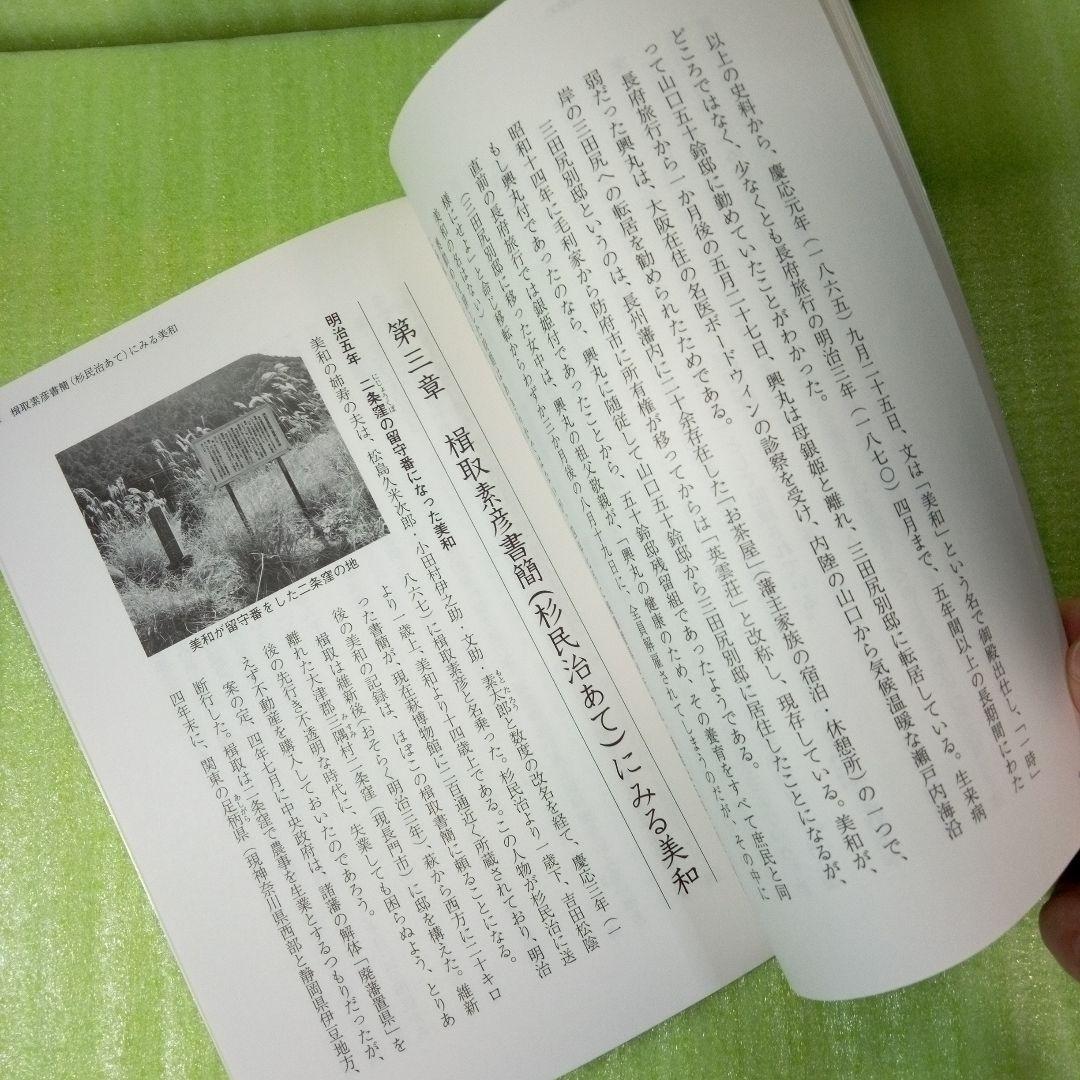 以上の史料から、慶応元年（一八六五）九月二十五日、文は「美和」という名で御殿出仕し、「一時」
どころではなく、少なくとも長府旅行の明治三年（一八七〇）四月まで、五年間以上の長期間にわた
って山口五十鈴邸に勤めていたことがわかった。
長府旅行から一か月後の五月二十七日、興丸は母銀姫と離れ、三田尻別邸に転居している。生来病
弱だった興丸は、大阪在住の名医ボードウィンの診察を受け、内陸の山口から気候温暖な瀬戸内海沿
岸の三田尻への転居を勧められたためである。
三田尻別邸というのは、長州藩内に二十余存在した「お茶屋」（藩主家族の宿泊・休憩所）の一つで、
昭和十四年に毛利家から防府市に所有権が移ってからは「英雲荘」と改称し、現存している。美和が、
もし興丸付であったのなら、興丸に随従して山口五十鈴邸から三田尻別邸に居住したことになるが、
直前の長府旅行では銀姫付であったことから、五十鈴邸残留組であったようである。
（三田尻別邸に移った女中は、興丸の祖父敬親が、「興丸の健康のため、その養育をすべて庶民と同
様にせよ」と命じ移転からわずか三か月後の八月十九日に、全員解雇されてしまうのだが、その中に
第三章　楫取素彦書簡（杉民治あて）にみる美和
明治五年　二条窪の留守番になった美和
美和の姉寿の夫は、松島久米次郎・小田村伊之助・文助・素太郎と数度の改名を経て、慶応三年（一
八六七）に楫取素彦と名乗った。杉民治より一歳下、吉田松陰
より一歳上、美和より十四歳上である。この人物が杉民治に送
った書簡が、現在萩博物館に二百通近く所蔵されており、明治
後の美和の記録は、ほぼこの楫取書簡に頼ることになる。
楫取は維新後（おそらく明治三年）、萩から西方に二十キロ
離れた大津郡三隅村二条窪（現長門市）に邸を構えた。維新
後の先行き不透明な時代に、失業しても困らぬよう、とりあ
えず不動産を購入しておいたのであろう。
案の定、四年七月に中央政府は、諸藩の解体「廃藩置県」を
断行した。楫取は二条窪で農事を生業とするつもりだったが、
四年末に、関東の足柄県（現神奈川県西部と静岡県伊豆地方、
美和が留守番をした二条窪の地
楫取素彦書簡（杉民治あて）にみる美和